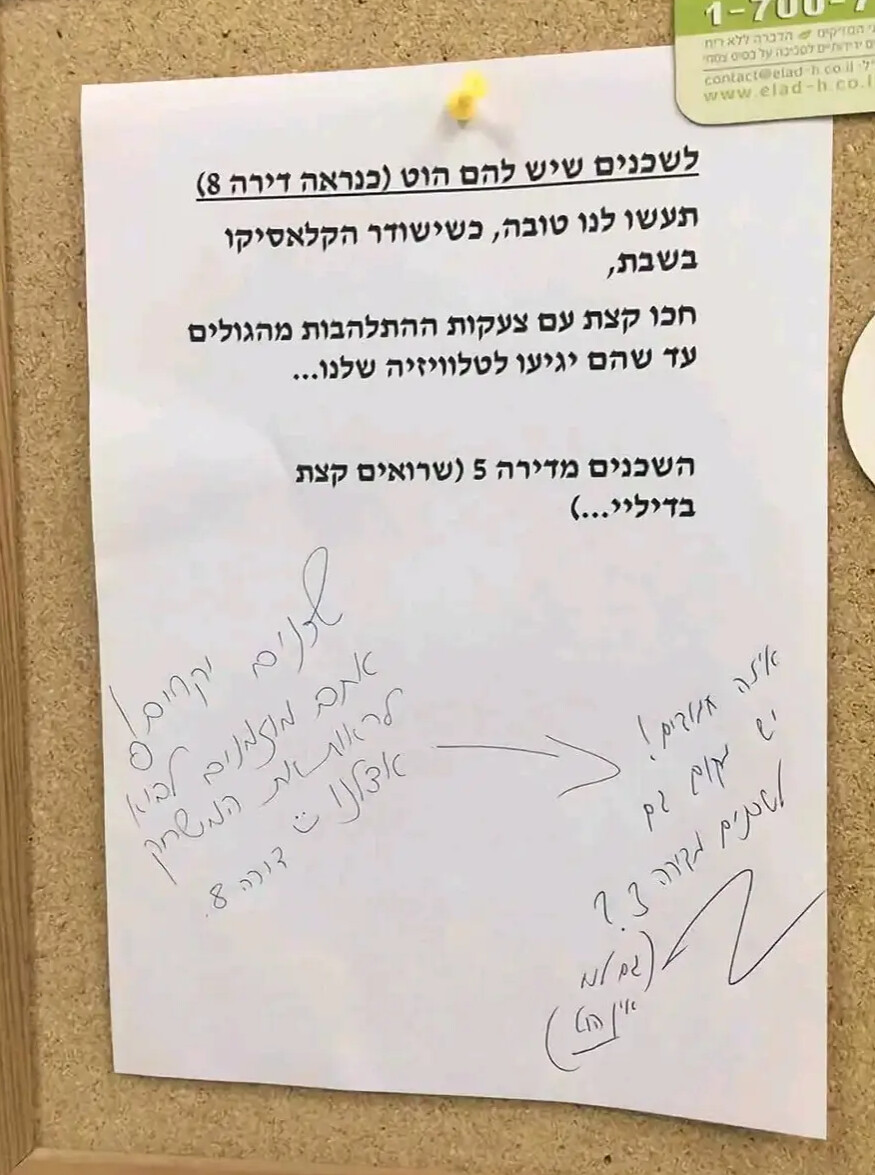 1-700-7
הדברה ללא ריח
contact@elad-h.co.il
www.elad-h.co.il
לשכנים שיש להם הוט (כנראה דירה 8)
תעשו לנו טובה, כשישודר הקלאסיקו
בשבת,
חכו קצת עם צעקות ההתלהבות מהגולים
עד שהם יגיעו לטלוויזיה שלנו...
השכנים מדירה 5 (שרואים קצת
בדיליי...)
שכנים יקרים!
אתם מוזמנים לבוא
לראות את המשחק
אצלנו :)
דירה 8.
איזה חמודים!
יש מקום גם
לשכנים מדירה 3?
(גם לנו
אין הוט)